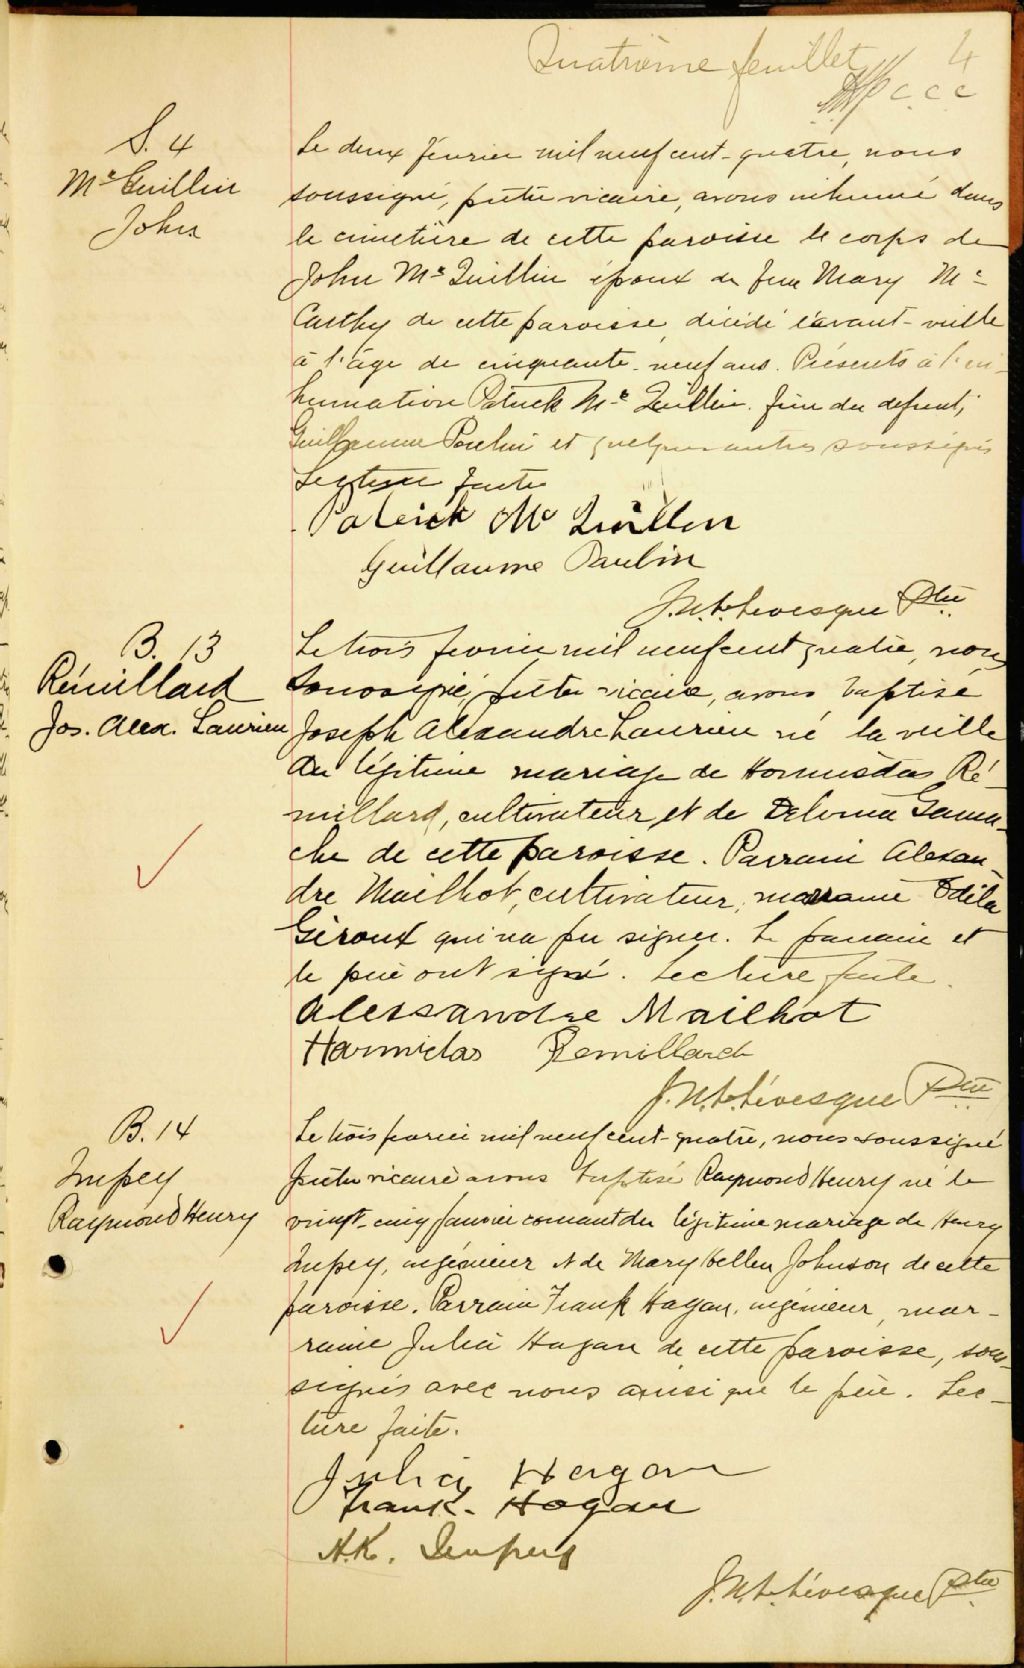 Quatrième feuillet 4
C. C. C
S. 4
Mc Quillin
John
Le deux février mil neuf cent-quatre, nous
soussigné, prêtre vicaire, avons inhumé dans
le cimetière de cette paroisse le corps de
John Mc Quillin époux de feue Mary Mc
Carthy de cette paroisse, décédé l'avant-veille
à l'âge de cinquante-neuf ans. Présents à l'in-
humation Patrick Mc Quillin, du défunt,
Guillaume Poulin et quelques autres soussignés
Lecture faite
Patrick Mc Quillen
Guillaume Paulin
J.N.L. Levesque Ptre
B. 13
Rémillard
Jos. Alex. Laurien
Le trois février mil neuf cent quatre, nous
soussigné, prêtre vicaire, avons baptisé
Joseph Alexandre Laurien né la veille
du légitime mariage de Hormisdas Ré-
millard, cultivateur et de Deloma Gama-
che de cette paroisse. Parrain Alexan-
dre Mailhot, cultivateur, marraine Odila
Giroux qui n'a pu signer. Le parrain et
le père ont signé. Lecture faite.
Alessandre Mailhot
Harmidas Remillard
J.N.L. Lévesque Ptre
B. 14
Impey
Raymond Henry
Le trois février mil neuf cent-quatre, nous soussigné
prêtre vicaire avons baptisé Raymond Henry né le
vingt-cinq janvier courant du légitime mariage de Henry
Impey, ingénieur et de Mary Hellen Johnson de cette
paroisse. Parrain Frank Hagan, ingénieur, mar-
raine Julia Hagan de cette paroisse, sous-
signés avec nous ainsi que le père. Lec-
ture faite.
Julia Hagan
Frank. Hogan
H.K. Impey
J.N.L. Lévesque Ptre